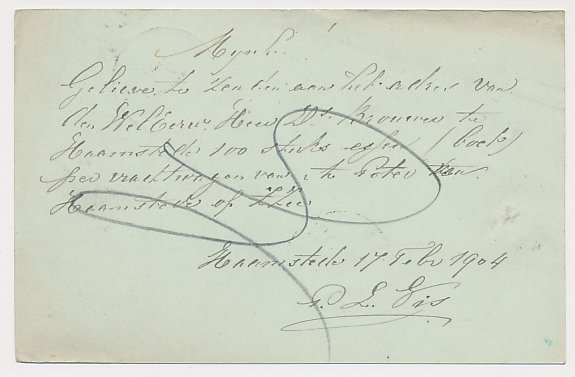 Mijnh!
Gelieve te zenden aan het adres van
den WelEerw. Heer Ds Brouwer te
Haamstede 100 stuks essen
per vrachtwagen van
Haamstede of
Haamstede 17 Febr 1904
P. L. Vis